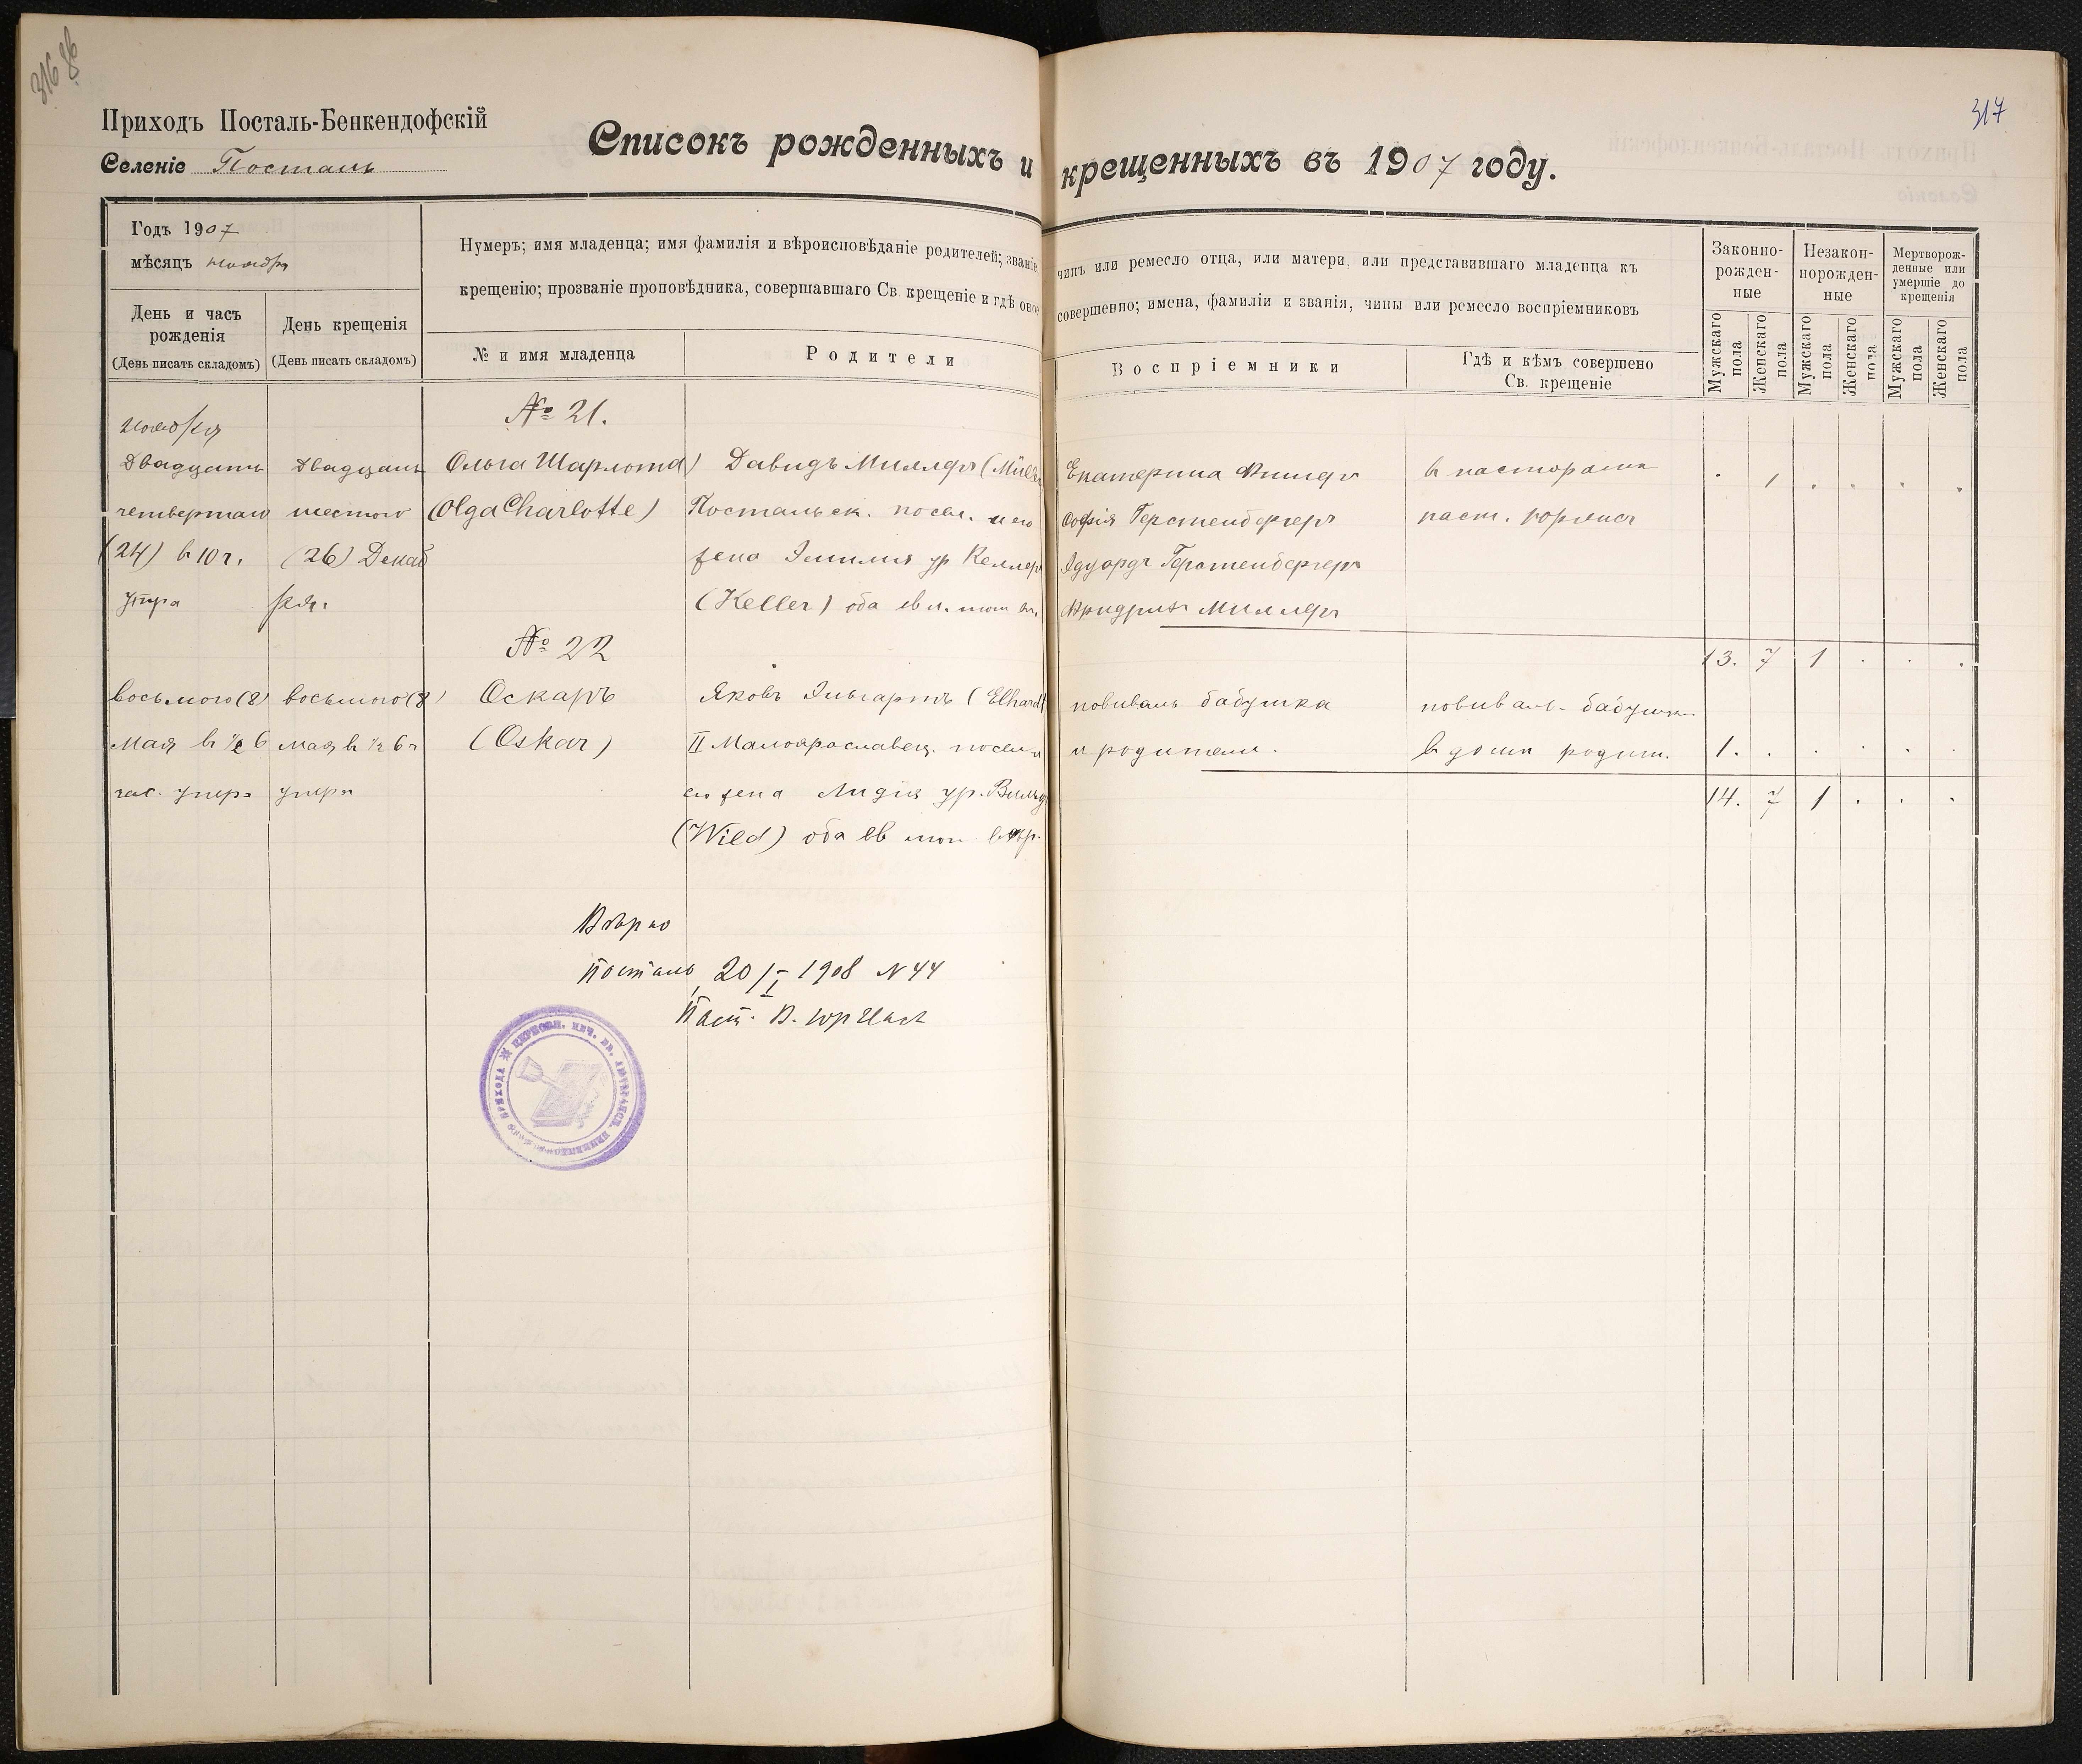 316
317
Приходъ Посталь-Бенкендофскій
Селеніе Посталь
Списокъ рожденныхъ и крещенныхъ въ 1907 году.
Годъ 1907
мѣсяцъ ноября
Нумеръ; имя младенца; имя фамилія и вѣроисповѣданіе родителей; званіе, чинъ или ремесло отца, или матери, или представившаго младенца къ
крещенію; прозваніе проповѣдника, совершавшаго Св. крещеніе и гдѣ оное совершенно; имена, фамиліи и званія, чины или ремесло воспріемниковъ
День и часъ рожденія
(День писать складомъ)
День крещенія
(День писать складомъ)
№ и имя младенца
Родители
Воспріемники
Гдѣ и кѣмъ совершено Св. крещеніе
Законно-рожден-ные
Незакон-норожден-ные
Мертворож-денные или умершіе до крещенія
Мужскаго пола
Женскаго пола
Мужскаго пола
Женскаго пола
Мужскаго пола
Женскаго пола
№ 21.
ноября
Двадцать
четвертаго
(24) в 10 ч.
утра
Двадцать
шестого
(26) Декаб
ря.
Ольга Шарлота
(Olga Charlotte)
Давидъ Миллеръ (Müller
Постальск. посел. и его
жена Эмилия ур Келлеръ
(Keller) оба ев л.
Екатерина
Софія Герстенбергеръ
Эдуардъ Герстенбергеръ
Фридрихъ Миллеръ
в пасторате
паст. Юргенсъ
. 1 . . . .
13. 7 1 . . .
№ 22
восьмого (8)
Мая в ½ 6
час. утра
восьмого (8)
мая в ½ 6 ч
утра
Оскаръ
(Oskar)
Яковъ Эльгартъ (Elhardt
II Малоярославец. посел и
его жена Лидія ур. Вильд
(Wild) оба ев лют.
повиваль бабушка
и родители.
повиваль. бабушка
в доме родит.
1. . . . . .
14. 7 1 . . .
Вѣрно
Посталь, 20/I 1908 N 44
Паст. В. Юргенсъ